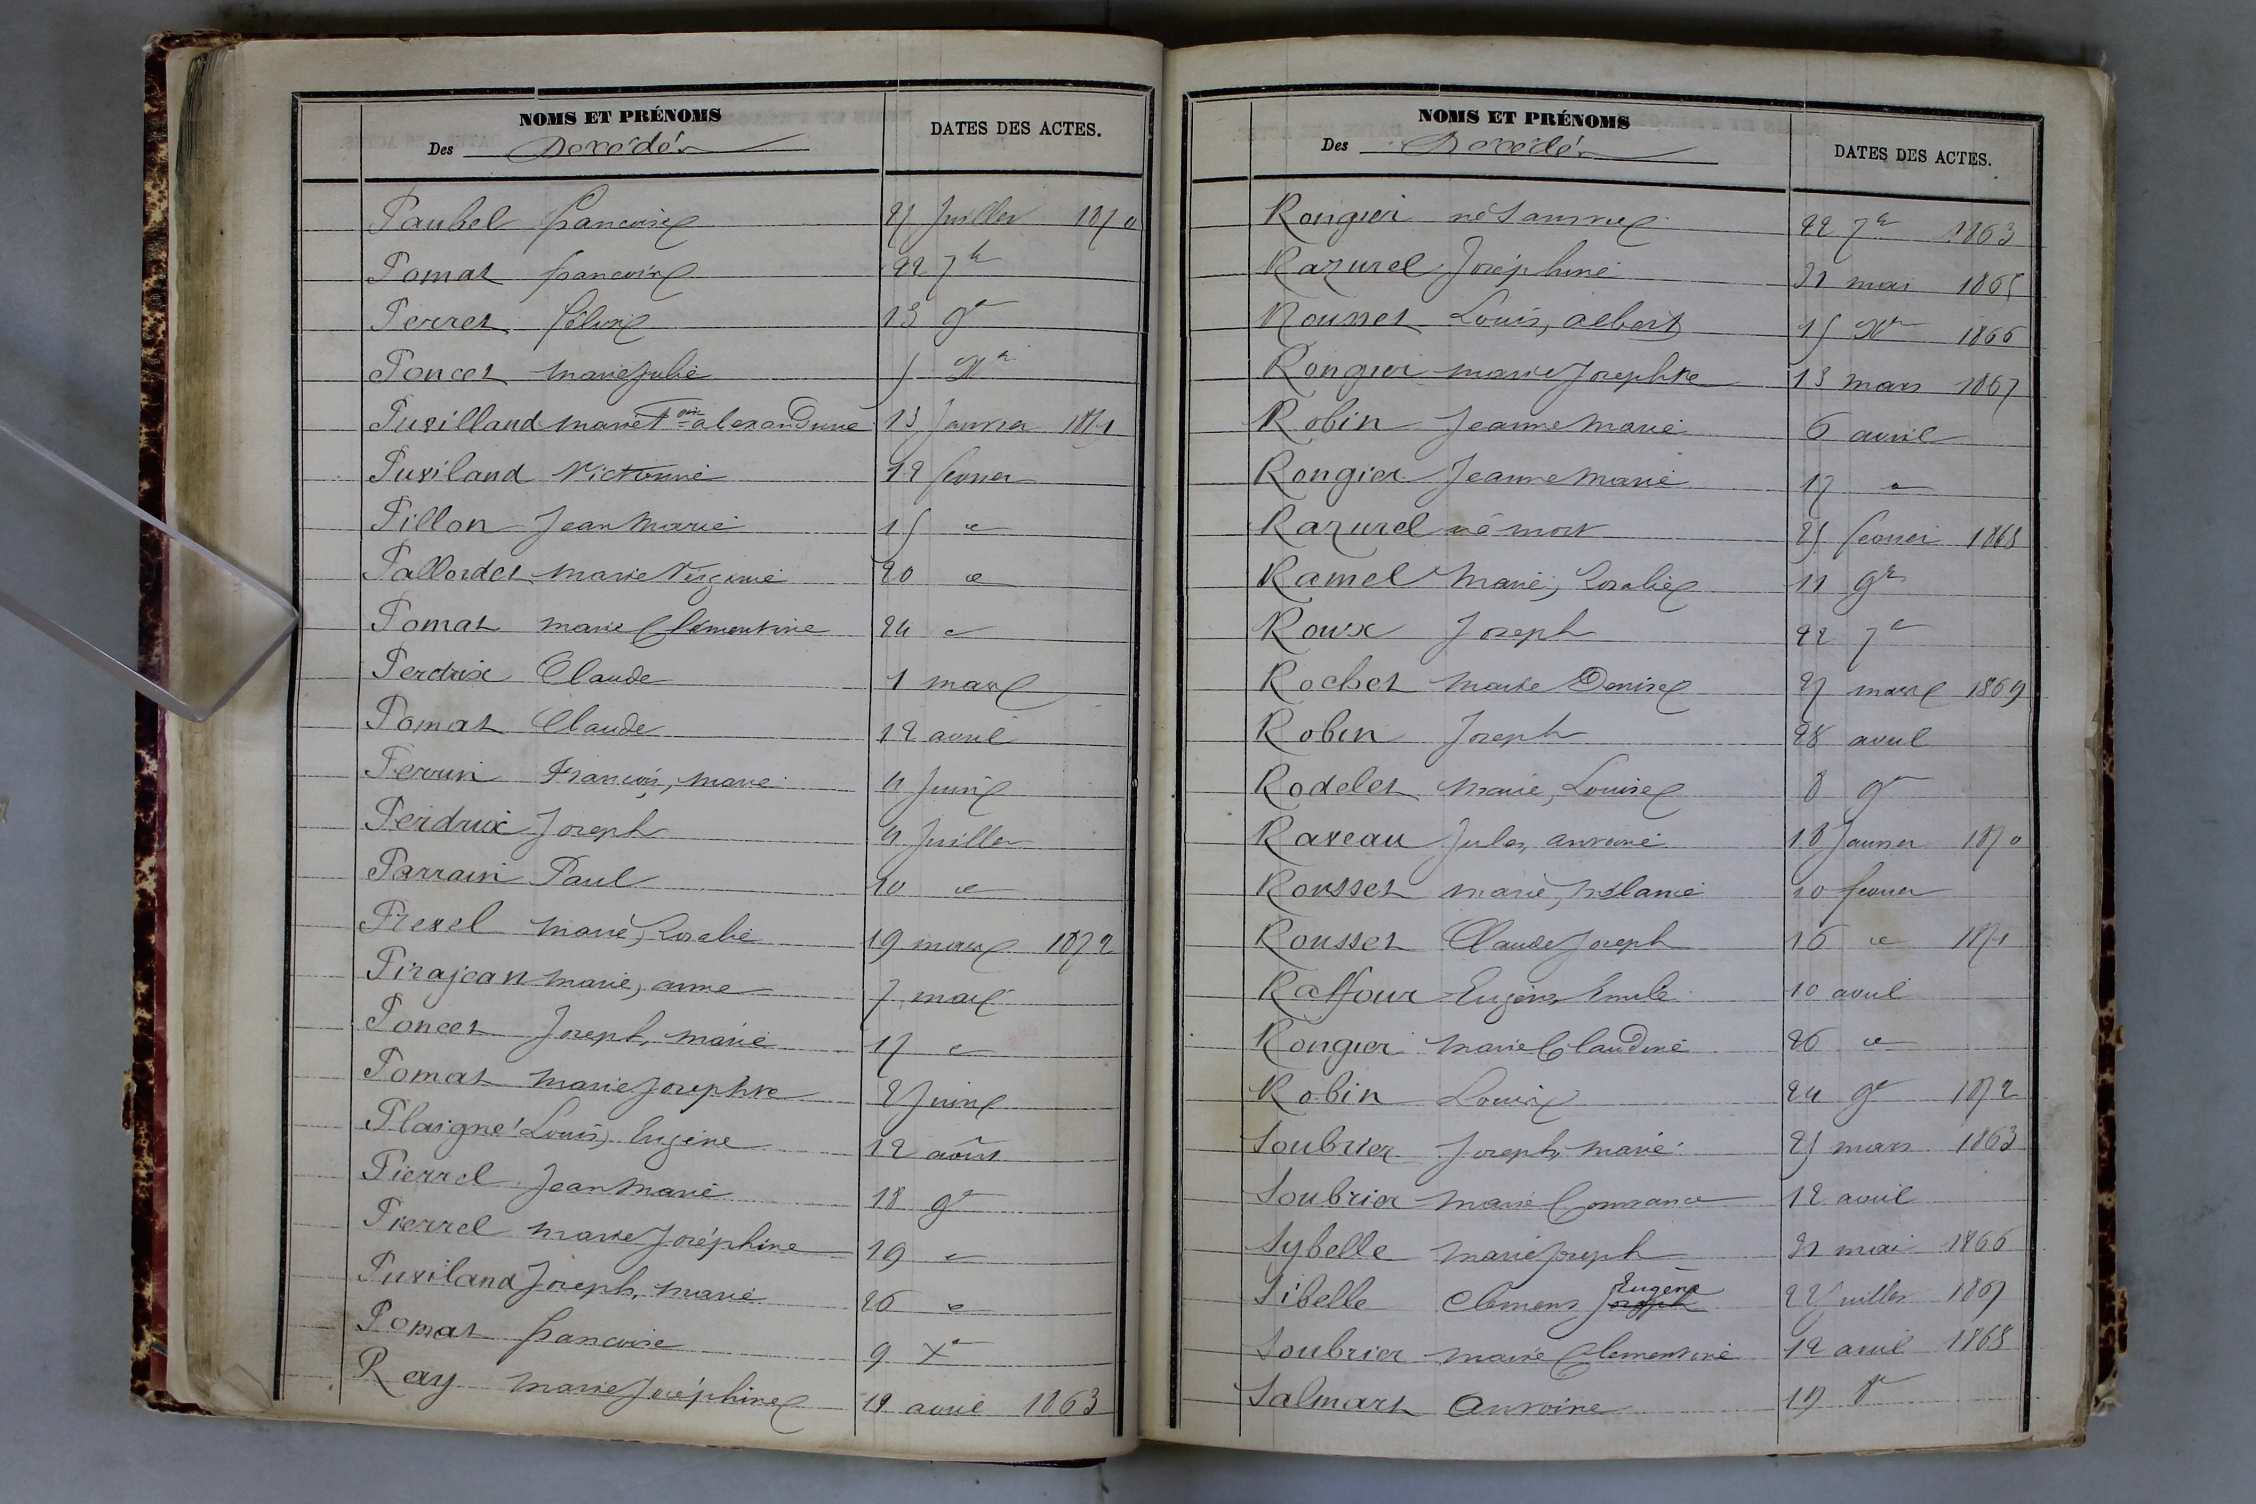 NOMS ET PRÉNOMS
Des Décédés
DATES DES ACTES.
Paubel françoise 27 Juillet 1870
Pomat françoise 22 7bre
Perret félix 13 9re
Poncet marie Julie 5 Xre
Puvilland marie alexandrine 13 Janvier 1871
Puviland Victorine 12 fevrier
Pillon Jean Marie 15 "
Pallordet Marie Virginie 20 "
Pomat marie Clémentine 24 "
Perdrix Claude 1 mars
Pomat Claude 12 avril
Perrin François, marie 4 Juin
Perdrix Joseph 4 Juillet
Parrain Paul 20 "
Prevel Marie, Rosalie 19 mars 1872
Pirajean Marie, anne 7 mai
Poncet Joseph, marie 17 "
Pomat Marie Josephte 2 Juin
Plaigne Louis, Eugène 12 août
Pierrel Jean Marie 18 9re
Pierrel Marie Joséphine 19 "
Puviland Joseph, marie 26 "
Pomat françoise 9 Xre
Ray Marie Joséphine 12 avril 1863
NOMS ET PRÉNOMS
Des Décédés
DATES DES ACTES.
Rongier né 22 7re 1863
Razurel Joséphine 31 mai 1865
Rousset Louis, albert 15 Xre 1866
Rongier Marie Josephte 13 mars 1867
Robin Jeanne Marie 6 avril
Rongier Jeanne Marie 17 "
Razurel né mort 25 fevrier 1868
Ramel Marie, Rosalie 11 9re
Roux Joseph 22 7re
Rochet Marie Denise 27 mars 1869
Robin Joseph 28 avril
Rodelet Marie, Louise 8 9re
Raveau Jules, antoine 18 Janvier 1870
Rousset Marie, Mélanie 20 fevrier
Rousset Claude Joseph 16 " 1871
Raffour Eugène Emile 10 avril
Rongier Marie Claudine 26 "
Robin Louise 24 9re 1872
Soubrier Joseph, Marie 25 mars 1863
Soubrier Marie Constance 12 avril
Sybelle Marie Joseph 31 mai 1866
Eugène
Sibelle Clément Joseph 22 Juillet 1867
Soubrier Marie Clementine 12 avril 1868
Salmart Antoine 19 8re